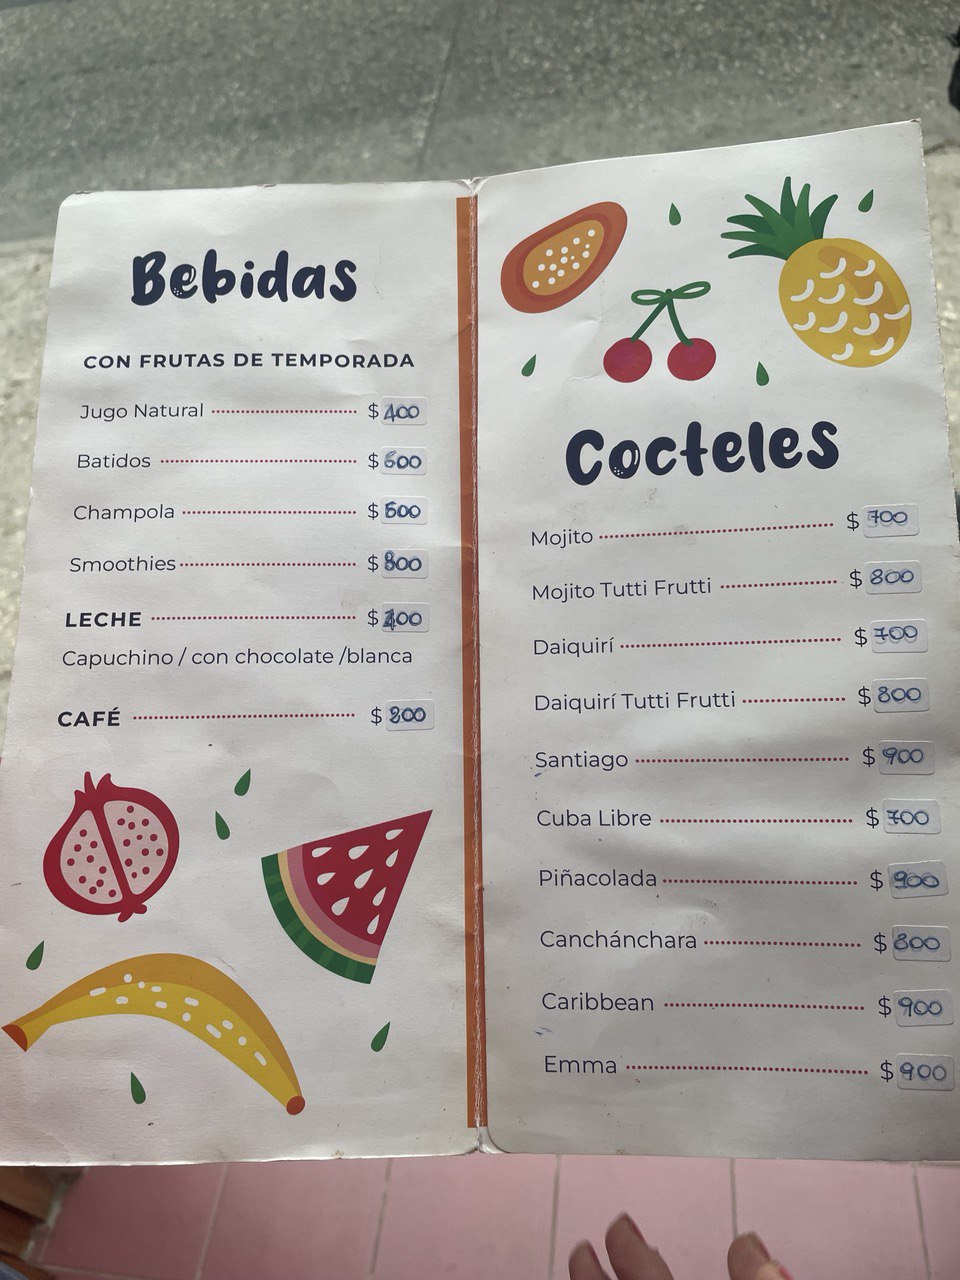 Bebidas
CON FRUTAS DE TEMPORADA
Jugo Natural $ 400
Batidos $ 600
Champola $ 600
Smoothies $ 800
LECHE $
Capuchino / con chocolate /blanca
CAFÉ $
Cocteles
Mojito $ 700
Mojito Tutti Frutti $ 800
Daiquirí $ 700
Daiquirí Tutti Frutti $ 800
Santiago $ 900
Cuba Libre $ 700
Piñacolada $ 900
Canchánchara $ 800
Caribbean $ 900
Emma $ 900